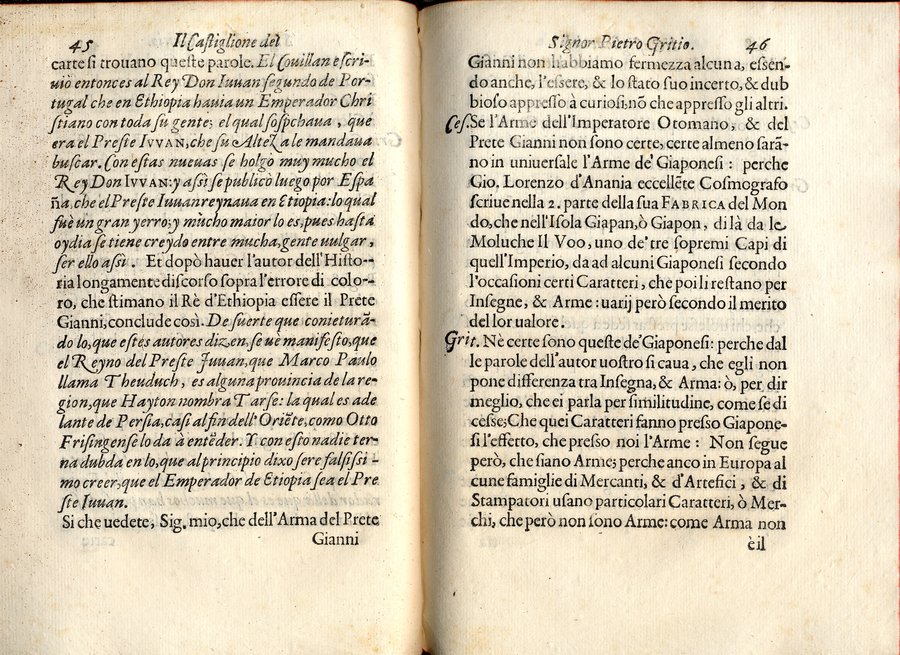 45 Il Castiglione del
carte si trouano queste parole. El Couillan escri-
uiò entonces al Rey Don Iuuan segundo de Por-
tugal che en Ethiopia hauia un Emperador Chri
stiano con toda su gente; el qual sospchaua, que
era el Preste IVVAN, che su Alteza le mandaua
buscar. Con estas nueuas se holgò muy mucho el
Rey Don IVVAN: y assi se publicò luego por Espa
ña, che el Preste Iuuan reynaua en Etiopia: lo qual
fuè un gran yerro; y mucho maior lo es, pues hasta
oydia se tiene creydo entre mucha, gente uulgar,
ser ello assi. Et dopò hauer l'autor dell'Histo--
ria longamente discorso sopra l'errore di colo--
ro, che stimano il Rè d'Ethiopia essere il Prete
Gianni, conclude così. De suerte que conieturā-
do lo, que estes autores dizen, se uè manifesto, que
el Reyno del Preste Iuuan, que Marco Paulo
llama Theuduch, es alguna prouincia de la re-
gion, que Hayton nombra Tarse: la qual es ade
lante de Persia, casi al fin dell'Oriēte, como Otto
Frisingense lo da à entēder. Y con esto nadie ter-
na dubda en lo, que al principio dixo sere falsissi-
mo creer, que el Emperador de Etiopia sea el Pre
ste Iuuan.
Si che uedete, Sig. mio, che dell'Arma del Prete
Gianni
Signor Pietro Gritio. 46
Gianni non habbiamo fermezza alcuna, essen-
do anche, l'essere, & lo stato suo incerto, & dub
bioso appresso à curiosi; nō che appresso gli altri.
Ces. Se l'Arme dell'Imperatore Otomano, & del
Prete Gianni non sono certe, certe almeno sarā-
no in uniuersale l'Arme de' Giaponesi: perche
Gio. Lorenzo d'Anania eccellēte Cosmografo
scriue nella 2. parte della sua FABRICA del Mon
do, che nell'Isola Giapan, ò Giapon, di là da le
Moluche Il Voo, uno de' tre sopremi Capi di
quell'Imperio, da ad alcuni Giaponesi secondo
l'occasioni certi Caratteri, che poi li restano per
Insegne, & Arme: uarij però secondo il merito
del lor ualore.
Grit. Nè certe sono queste de' Giaponesi: perche dal
le parole dell'autor uostro si caua, che egli non
pone differenza tra Insegna, & Arma: ò, per dir
meglio, che ei parla per similitudine, come se di
cesse; Che quei Caratteri fanno presso Giapone-
si l'effetto, che presso noi l'Arme: Non segue
però, che siano Arme; perche anco in Europa al
cune famiglie di Mercanti, & d'Artefici, & di
Stampatori usano particolari Caratteri, ò Mer-
chi, che però non sono Arme: come Arma non
è il